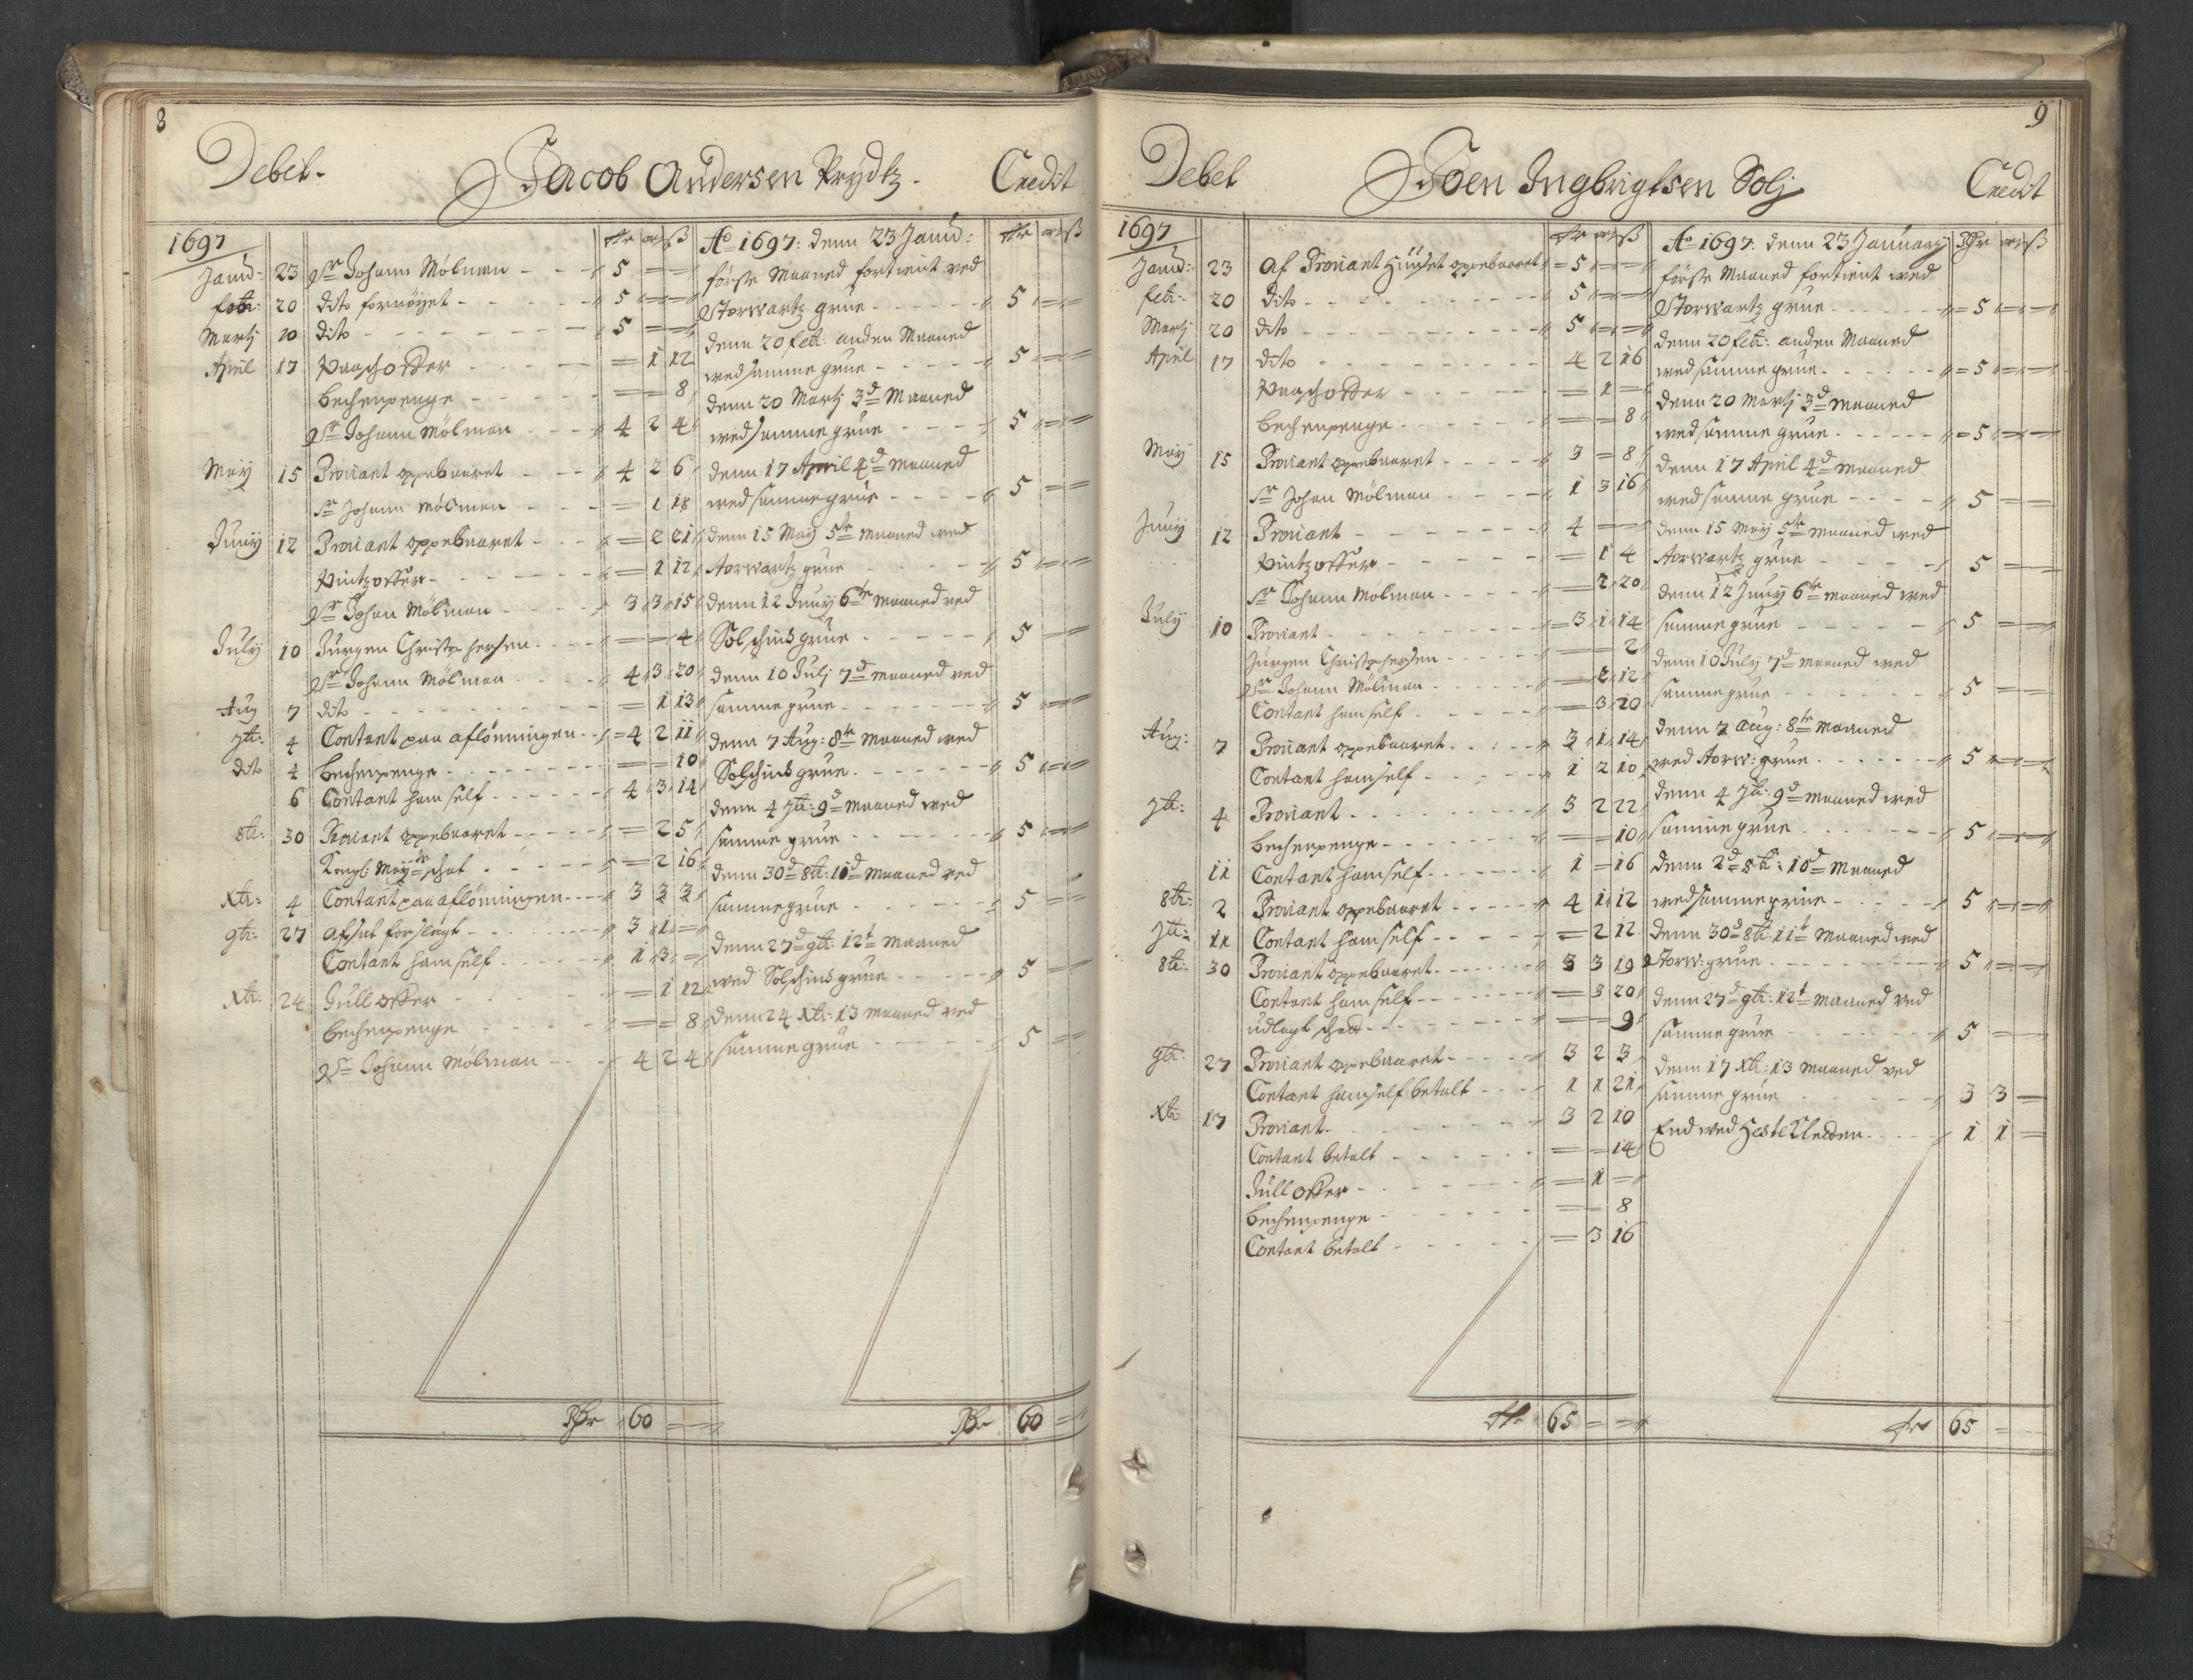 8
Debet.
Jacob Andersen Prydtz.
Credit
1697
Janu: 23 Sr Johann Mölman 5 = =
febr: 20 dito fornöyet 5 = =
Martj 20 dito 5 = =
April 17 Paaschoffer = 1 12
bechenpenge = = 8
Sr Johann Mölman 4 2 4
Maij 15 Proviant oppebaaret 4 2 6
Sr Johann Mölman = 1 18
Junij 12 Proviant oppebaaret = 2 21
Pintzoffer = 1 12
Sr Johan Mölman 3 3 15
July 10 Jürgen Christophersen = = 4
Sr Johann Mölman 4 3 20
Aug 7 dito = 1 13
7br: 4 Contant paa aflönningen 4 2 11
dito 4 bechenpenge = = 10
6 Contant ham self 4 3 14
8br: 30 Proviant oppebaaret = 2 5
Kongl: May: schat = 2 16
Xbr: 4 Contant paa aflönningen 3 3 3
9br: 27 afsat forslagt 3 1 =
Contant ham self 1 3 =
Xbr: 24 Jull offer = 1 12
bechenpenge = = 8
Sr Johann Mölman 4 2 4
Rdr 60 = =
Ao 1697: denn 23 Janu:
förste Maaned fortient ved
Storwartz grue 5 = =
denn 20 febr: anden Maaned
wed samme grue 5 = =
denn 20 Martj 3d Maaned
wed samme grue 5 = =
denn 17 April 4d Maaned
wed samme grue 5 = =
denn 15 Maij 5te Maaned wed
Storwartz grue 5 = =
denn 12 Junij 6te Maaned ved
Solschins grue 5 = =
denn 10 Julj 7d Maaned ved
samme grue 5 = =
denn 7 Aug: 8te Maaned wed
Solschins grue 5 = =
denn 4 7br: 9d Maaned wed
samme grue 5 = =
denn 30d 8br: 11d Maaned ved
samme grue 5 = =
denn 27d 9br: 12t Maaned
wed Solschins grue 5 = =
denn 24 Xbr: 13 Maaned ved
samme grue 5 = =
Rdr 60 = =
9
Debet
Joen Ingbrigtsen Solj
Credit
1697
Janu: 23 Af Proviant Hüuset oppebaaret 5 = =
febr: 20 dito 5 = =
Martj 20 dito 5 = =
April 17 dito 4 2 16
Paaschoffer = 1 =
bechenpenge = = 8
May 15 Proviant oppebaaret 3 = 8
Sr Johan Mölman 1 3 16
Junij 12 Proviant 4 = =
Pintzoffer = 1 4
Sr Johann Mölman = 2 20
July 10 Proviant 3 1 14
Jürgen Christophersen = = 2
Sr Johann Mölman = 2 12
Contant ham self = 3 20
Aug: 7 Proviant oppebaaret 3 1 14
Contant ham self 1 2 10
7br: 4 Proviant 3 2 22
bechenpenge = = 10
11 Contant ham self 1 = 16
8br: 2 Proviant oppebaaret 4 1 12
7br: 11 Contant ham self = 2 12
8br: 30 Proviant oppebaaret 3 3 19
Contant ham self = 3 20
udlagt schatt = = 9
9br: 27 Proviant oppebaaret 3 2 3
Contant ham self betalt 1 1 21
Xbr: 17 Proviant 3 2 10
Contant betalt = = 14
Jull offer = 1 =
bechenpenge = = 8
Contant betalt = 3 16
dr 65 = =
Ao 1697: denn 23 January Rdr
förste Maaned fortient wed
Storwartz grue 5 = =
denn 20 febr: anden Maaned
wed samme grue 5 = =
denn 20 Martj 3d Maaned
wed samme grue 5 = =
denn 17 April 4d Maaned
wed samme grue 5 = =
denn 15 Maij 5te Maaned wed
Storwartz grue 5 = =
denn 12 Junij 6te Maaned wed
samme grue 5 = =
denn 10 July 7d Maaned wed
samme grue 5 = =
denn 7 Aug: 8te Maaned
wed Storw: grue 5 = =
denn 4 7br: 9d Maaned wed
samme grue 5 = =
denn 2d 8br: 10d Maaned
wed samme grue 5 = =
denn 30d 8br: 11t Maaned wed
Storw: grue 5 = =
denn 27d 9br: 12t Maaned ved
samme grue 5 = =
denn 17 Xbr: 13 Maaned ved
samme grue 3 3 =
End wed Heste Kledden 1 1 =
dr 65 = =